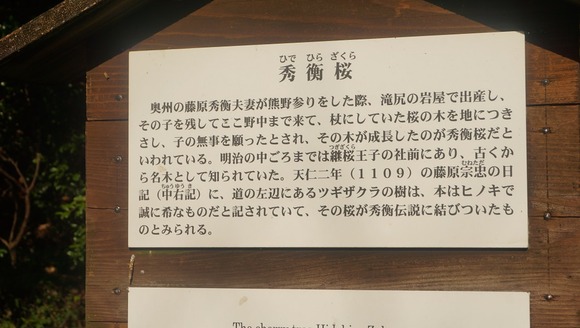 ひで ひら ざくら
秀衡桜
奥州の藤原秀衡夫妻が熊野参りをした際、滝尻の岩屋で出産し、
その子を残してここ野中まで来て、杖にしていた桜の木を地につき
さし、子の無事を願ったとされ、その木が成長したのが秀衡桜だと
つぎざくら
いわれている。明治の中ごろまでは継桜王子の社前にあり、古くか
むねただ
ら名木として知られていた。天仁二年（1109）の藤原宗忠の日
ちゅうゆうき
記（中右記）に、道の左辺にあるツギザクラの樹は、本はヒノキで
誠に希なものだと記されていて、その桜が秀衡伝説に結びついたも
のとみられる。
The cherry tree